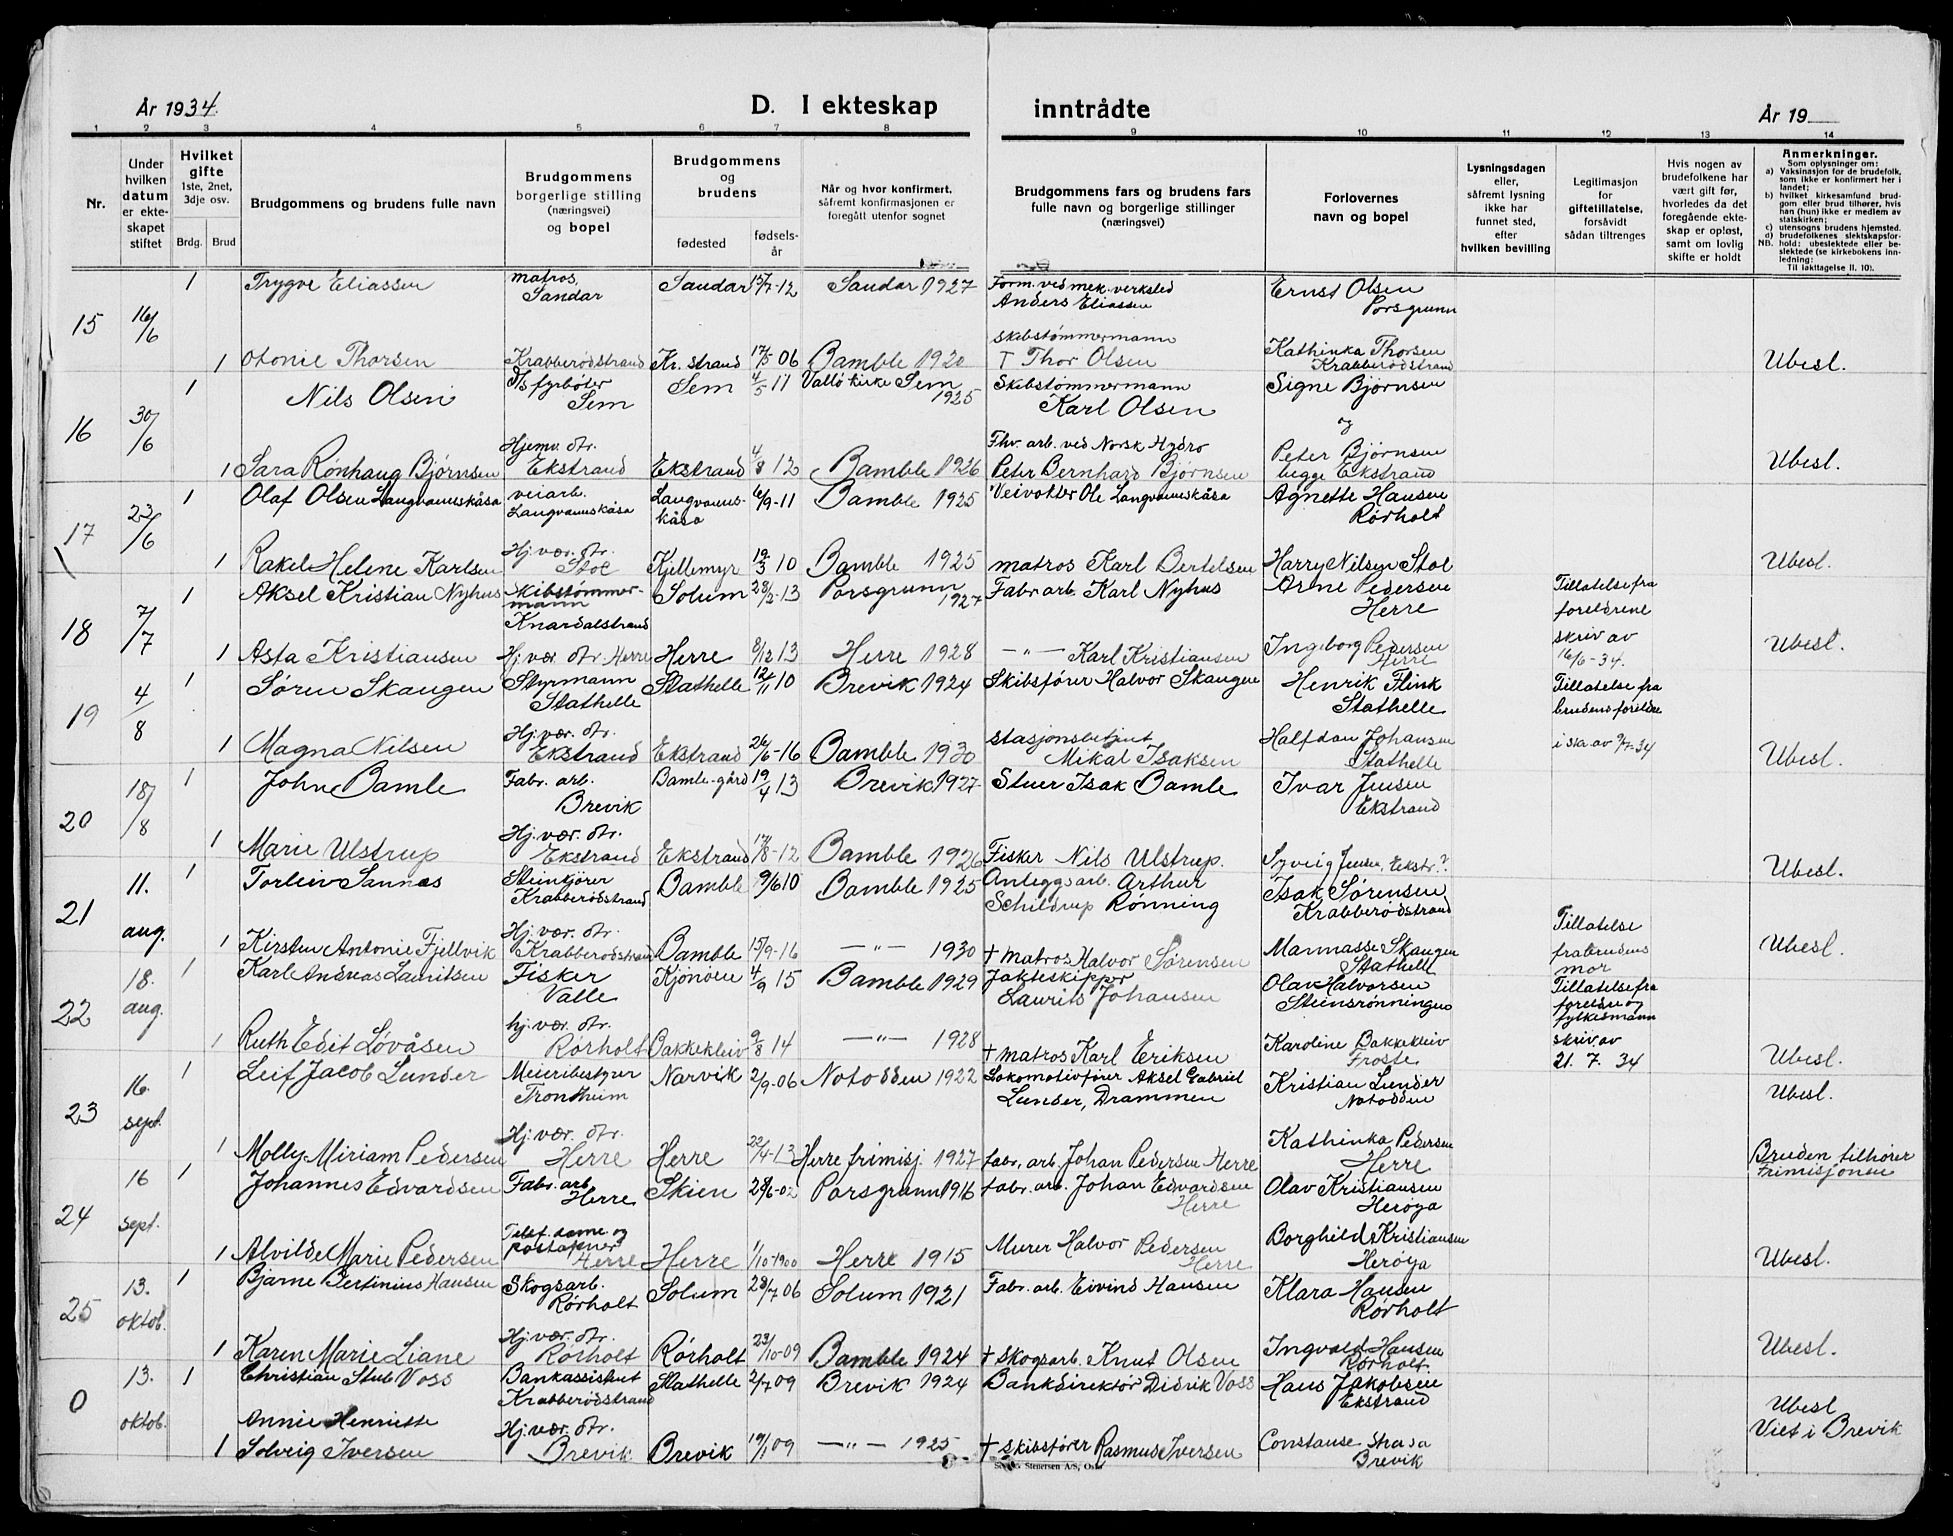 År 1934. D. I ekteskap inntrådte År 19
1 2 3 4 5 6 7 8 9 10 11 12 13 14
Nr.
Under hvilken datum er ekteskapet stiftet
Hvilket gifte 1ste, 2net, 3dje osv.
Brdg. Brud
Brudgommens og brudens fulle navn
Brudgommens borgerlige stilling (næringsvei) og bopel
Brudgommens og brudens
fødested fødselsår
Når og hvor konfirmert, såfremt konfirmasjonen er foregått utenfor sognet
Brudgommens fars og brudens fars fulle navn og borgerlige stillinger (næringsvei)
Forlovernes navn og bopel
Lysningsdagen eller, såfremt lysning ikke har funnet sted, efter hvilken bevilling
Legitimasjon for giftetillatelse, forsåvidt sådan tiltrenges
Hvis nogen av brudefolkene har vært gift før, hvorledes da det foregående ekteskap er opløst, samt om lovlig skifte er holdt
Anmerkninger.
Som oplysninger om:
a) Vaksinasjon for de brudefolk, som ikke er konfirmert her i landet;
b) hvilket kirkesamfund brudgom eller brud tilhører, hvis han (hun) ikke er medlem av statskirken;
c) utensogns brudens hjemsted.
d) brudefolkenes slektskapsforhold: ubeslektede eller beslektede (se kirkebokens innledning:
NB. Til iakttagelse II. 10).
15 16/6 1 Trygve Eliassen matros Sandar Sandar 15/7-12 Sandar 1927 Form. ved mek. verksted Anders Eliassen Ernst Olsen Porsgrunn
1 Otonie Thorsen Krabberødstrand Kr. strand 17/5 06 Bamble 1920 skibstømmermann † Thor Olsen Kathinka Thorsen Krabberødstrand Ubesl.
16 30/6 1 Nils Olsen D/s fyrbøter Sem Sem 4/5 11 Vallø kirke Sem 1925 Skibstømmermann Karl Olsen Signe Bjørnsen og
1 Sara Rønhaug Bjørnsen Hjemv. dtr. Ekstrand Ekstrand 4/8 12 Bamble 1926 Fhv. arb. ved Norsk Hydro Peter Bernhard Bjørnsen Peter Bjørnsen begge Ekstrand Ubesl.
17 23/6 1 Olaf Olsen Langvannskåsa veiarb. Langvannskåsa Langvannskåsa 6/9-11 Bamble 1925 Veivokter Ole Langvannskåsa Agnette Hansen Rørholt
1 Rakel Helene Karlsen Hj. vær. dtr. Stoe Kjellemyr 19/3 10 Bamble 1925 matros Karl Bertelsen Harry Nilsen Stol Ubesl.
18 7/7 1 Aksel Kristian Nyhus Skibstømmermann Knardalstrand Solum 28/3-13 Porsgrunn 1927 Fabr arb. Karl Nyhus Arne Pedersen Herre Tillatelse fra foreldrene
1 Asta Kristiansen Hj. vær. dtr. Herre Herre 8/12 13 Herre 1928 —"— Karl Kristiansen Ingeborg Pedersen Herre skriv av 16/6-34. Ubesl.
19 4/8 1 Søren Skaugen Styrmann Stathelle Stathelle 12/11 10 Brevik 1924 Skibsfører Halvor Skaugen Henrik Flink Stathelle Tillatelse fra brudens foreldre
1 Magna Nilsen Hj. vær. dtr. Ekstrand Ekstrand 26/6-16 Bamble 1930 stasjonsbetjent Mikal Isaksen Halfdan Johansen Stathelle i skr av 9/7-34 Ubesl.
20 18/8 1 John Bamle Fabr. arb. Brevik Bamle-gård 19/4 13 Brevik 1927 Stuer Isak Bamle Ivar Jensen Ekstrand
1 Marie Ulstrup Hj. vær. dtr. Ekstrand Ekstrand 17/8-12 Bamble 1926 Fisker Nils Ulstrup. Jensen, Ekstr. Ubesl.
21 11. aug. 1 Torleiv Sannes Steinkjører Krabberødstrand Bamble 9/6 10 Bamble 1925 Anleggsarb. Arthur Schildrup Rønning Isak Sørensen Krabberødstrand
1 Kirsten Antonie Fjellvik Hj. vær. dtr. Krabberødstrand Bamble 15/9-16 —"— 1930 † matros Halvor Sørensen Mannasse Skaugen Stathelle Tillatelse fra brudens mor Ubesl.
22 18. aug. 1 Karl Andreas Lauritsen Fisker Valle Kjønøen 4/9 15 Bamble 1929 Jakteskipper Laurits Johansen Olav Halvorsen Steinsrønningen Tillatelse fra foreldre og fylkesmann
1 Ruth Edit Løvåsen hj. vær. dtr. Rørholt Bakkekleiv 9/8 14 —"— 1928 † matros Karl Eriksen Karoline Bakkekleiv Froste skriv av 21. 7. 34 Ubesl.
23 16 sept. 1 Leif Jacob Lunder Meieribestyrer Trondheim Narvik 2/9-06 Notodden 1922 Lokomotivfører Aksel Gabriel Lunder, Drammen Kristian Lunder Notodden Ubesl.
1 Molly Miriam Pedersen Hj. vær. dtr. Herre Herre 22/4-13 Herre frimisj. 1927 fabr. arb. Johan Pedersen Herre Kathinka Pedersen Herre Bruden tilhører Frimisjonen
24 16 sept. 1 Johannes Edvardsen Fabr. arb. Herre Skien 28/6-02 Porsgrunn 1916 fabr. arb. Johan Edvardsen Herre Olav Kristiansen Herøya
1 Alvilde Marie Pedersen Telef. dame og poståpner Herre Herre 1/10-1900 Herre 1915 Murer Halvor Pedersen Herre Borghild Kristiansen Herøya Ubesl.
25 13. oktob. 1 Bjarne Bertinius Hansen Skogsarb. Rørholt Solum 28/7 06 Solum 1921 Fabr. arb. Eivind Hansen Klara Hansen Rørholt
1 Karen Marie Liane Hj. vær. dtr. Rørholt Rørholt 23/10-09 Bamble 1924 † skogsarb. Knut Olsen Ingvald Hansen Rørholt Ubesl.
0 13. oktob. 1 Christian Stub Voss Bankassistent Krabberødstrand Stathelle 2/7 09 Brevik 1924 Bankdirektør Didrik Voss Hans Jakobsen Ekstrand Ubesl
1 Annie Henriette Solveig Iversen Hj. vær. dtr. Brevik Brevik 19/1 09 —"— 1925 † skibsfører Rasmus Iversen Constanse Brevik Viet i Brevik
Stenersen A/S, Oslo